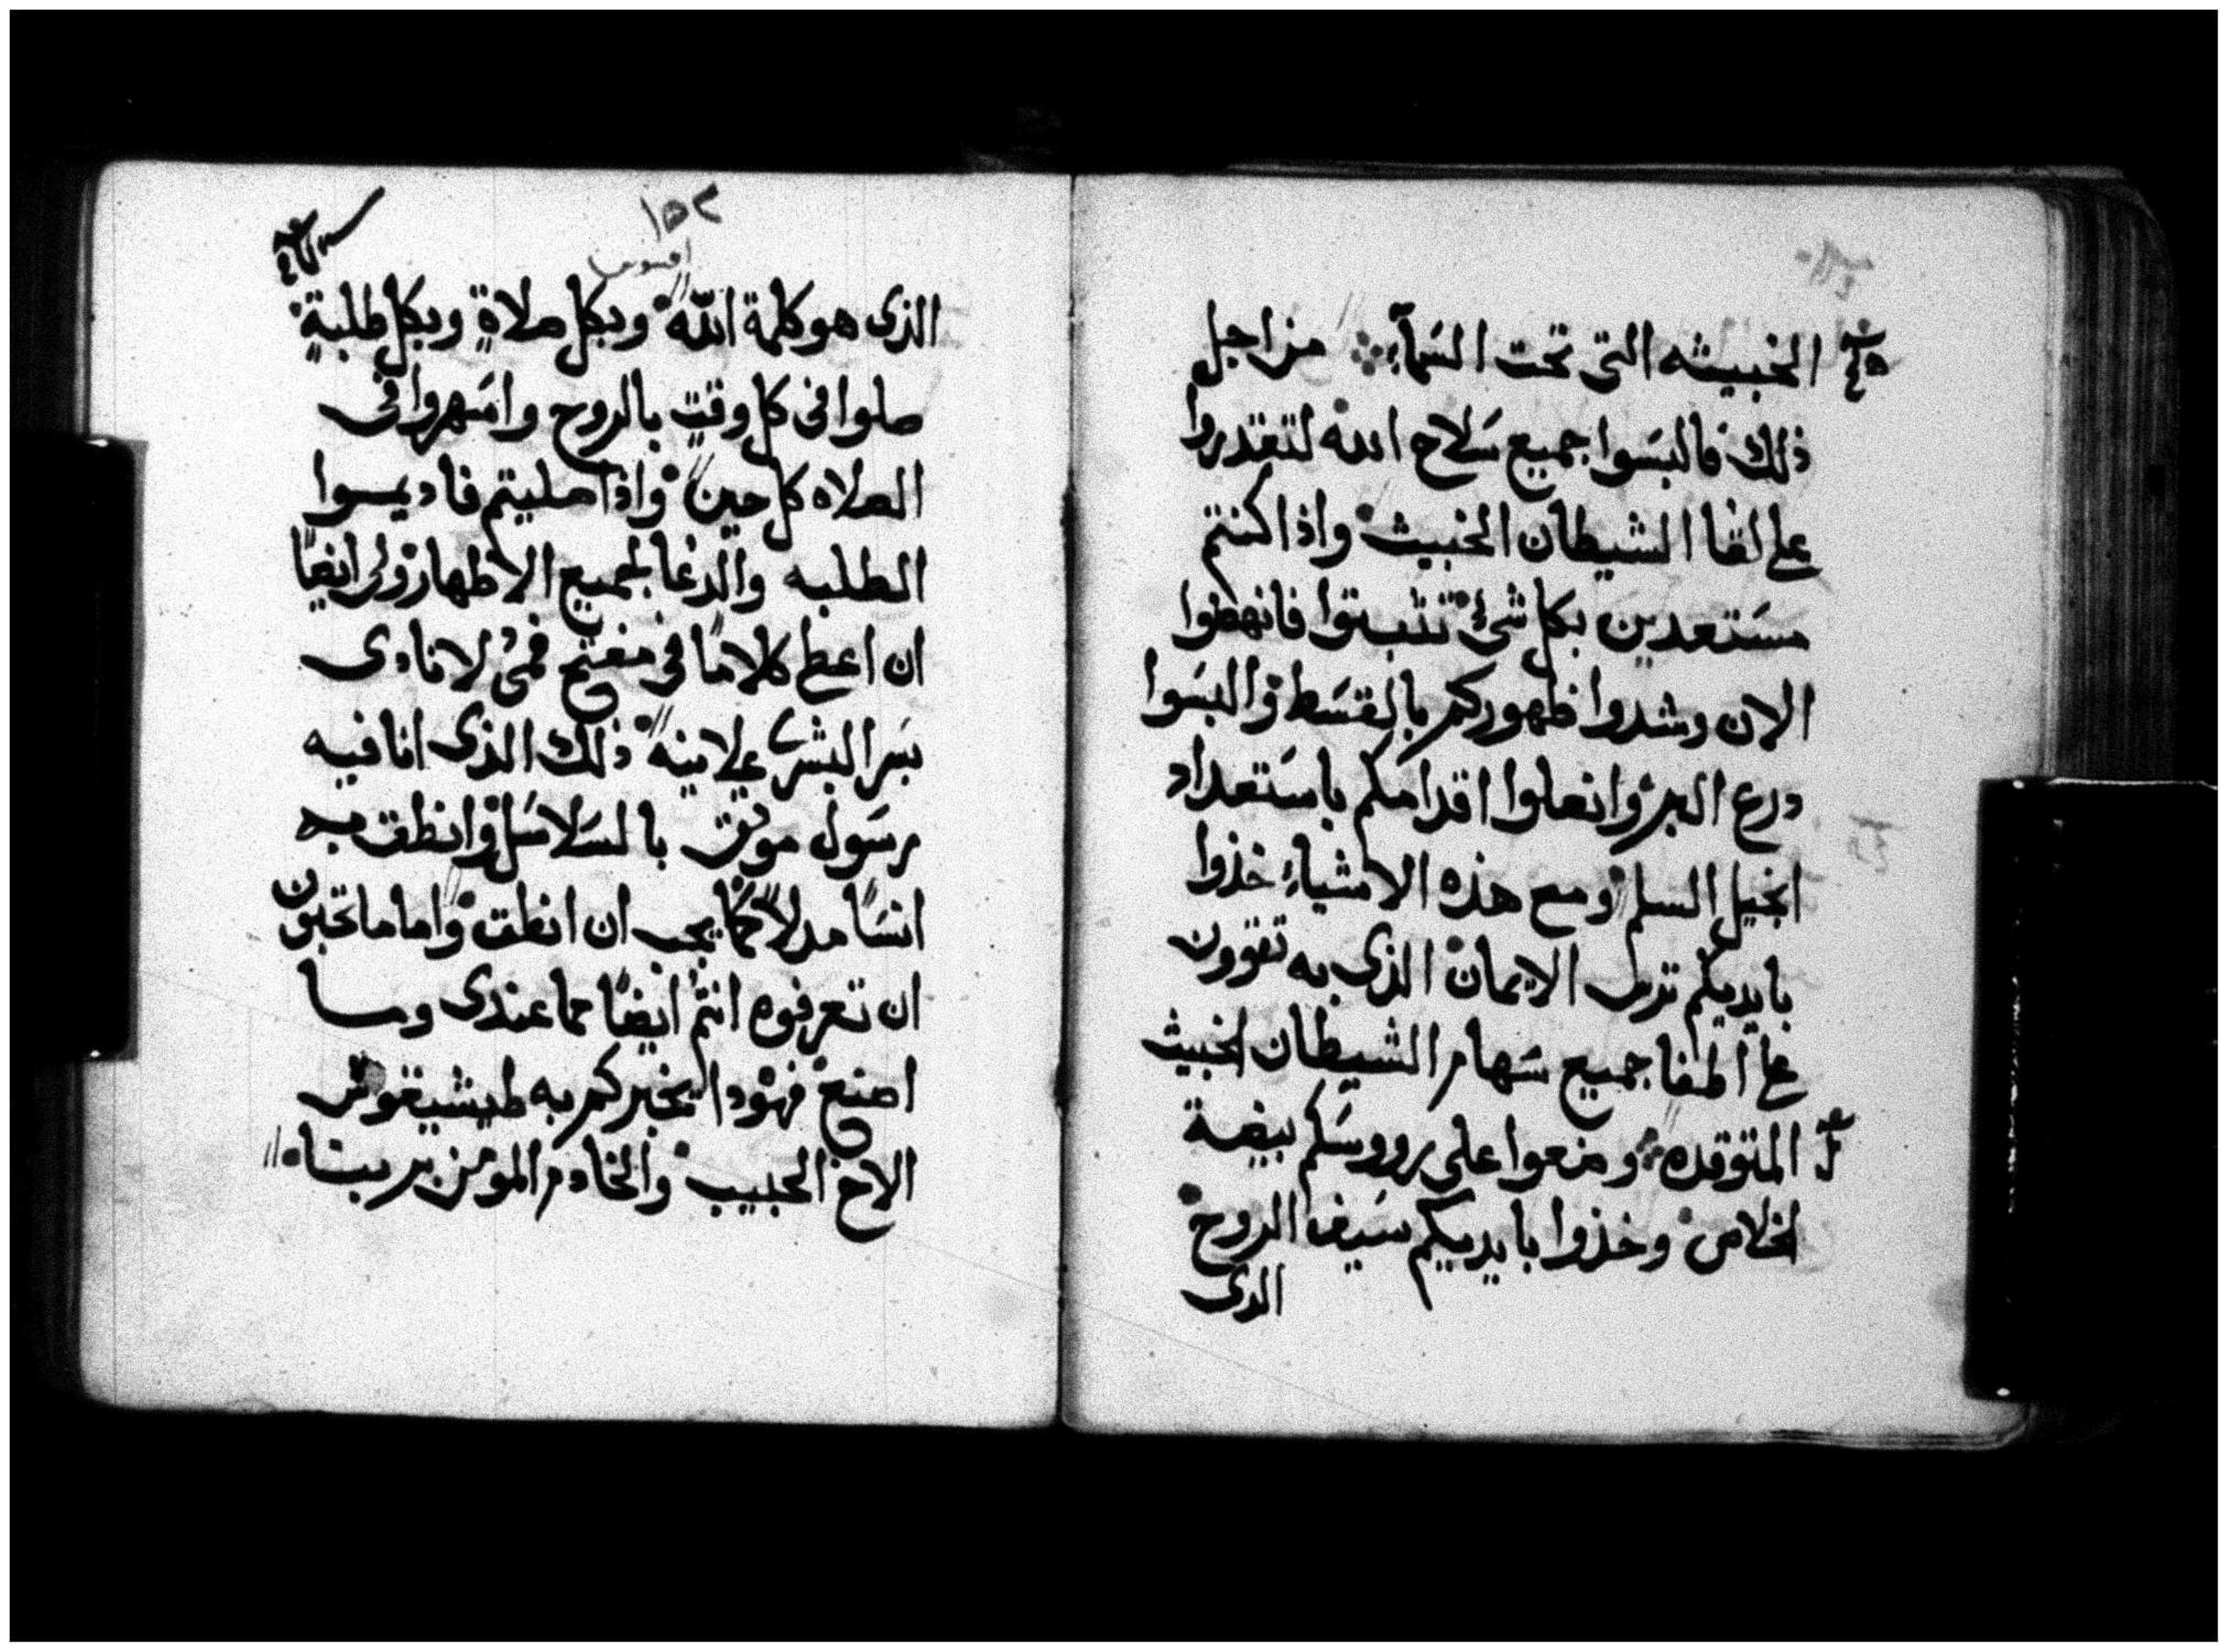 الخبيثه التى تحت السَمآءِ من اجل
ذلك فالبسَوا جميع سَلاح الله لتقدروا
على لقا الشيطان الخبيث واذا كنتم
مسَتعدين بكل شئ تثبتوا فانهضوا
الان وشدوا ظهوركم بالقسَط والبسَوا
درع البر وانعلوا اقدامكم باستعداد
انجيل السلم ومع هذه الاشياءِ خذوا
بايديكم ترس الايمان الذى به تقوون
على اطفا جميع سَهام الشيطان الخبيث
المتوقده وضعوا على رووسَكم بيضة
الخلاص وخذوا بايديكم سَيف الروح
الذى
١٥٢
افسوس
الذى هو كلمة الله وبكل صلاةٍ وبكل طلبةٍ
صلوا فى كل وقتٍ بالروح واسَهروا فى
الصلاه كل حين واذا صليتم فاديموا
الطلبه والدعا لجميع الاطهار ولى ايضًا
ان اعطى كلامًا فى مفتح فمىُ لانادى
بسَر البشرى علانيه ذلك الذى انا فيه
رسَول موثق بالسَلاسَل وانطق به
انسَا مدلاً كما يجب ان انطق واما ما تحبون
ان تعرفوه انتم ايضًا مما عندى وما
اصنع فهوذا يخبركم به طيشيقوس
الاخ الحبيب والخادم المومن بربنا